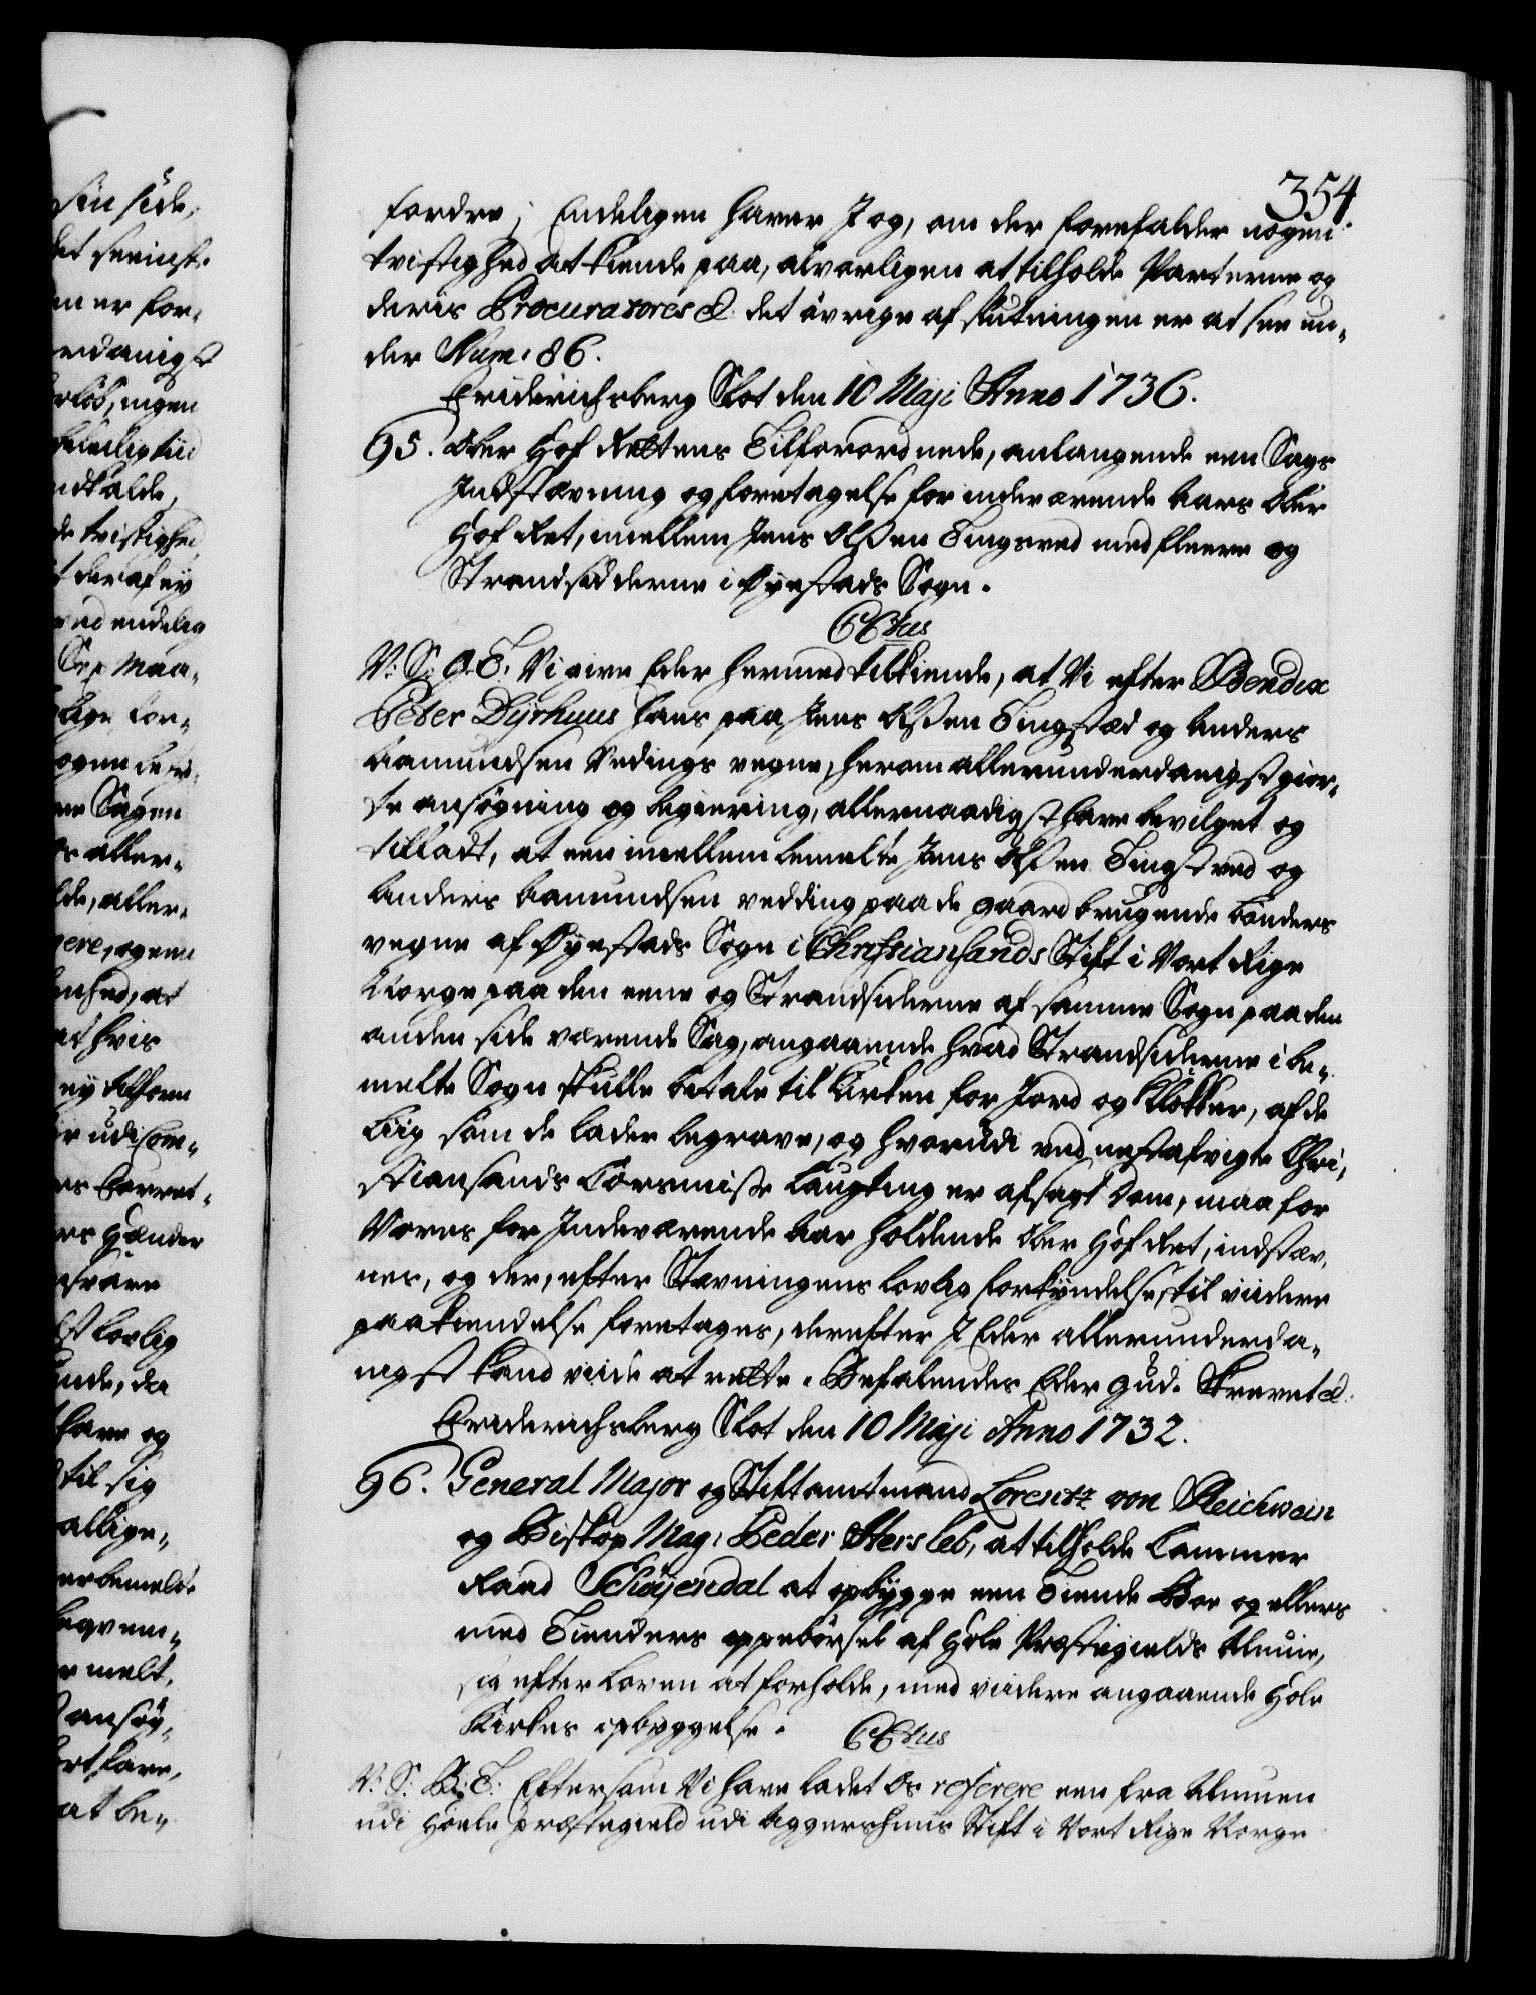 354
fordre; Endeligen haver I og, om der forefalder nogen
tvistighed at kiende paa, alvorligen at tilholde Parterne og
deris Procuratores &c. det øvrige af slutningen er at see un„
der Num: 86.
Friderichsberg Slot den 10 Maji Anno 1736.
95. Over Hof Rettens Tilforordnede, anlangende een Sags
Indstævning og foretagelse for indeværende Aars Over
Hof Ret, imellem Jens Olsen Tingsved med fleere og
Strandsidderne i Øyestads Sogn.
CVtus
V: S: G: T: Vi give Eder hermed tilkiende, at Vi efter Bendix
Peter Dyrhuus hans paa Jens Olsen Tingstæd og Anders
Aamundsen Vedings vegne, herom allerunderdanigst gior„
te ansøgning og begiering, allernaadigst have bevilget og
tilladt, at een imellem bemelte Jens Olsen Tingstved og
Anders Aamundsen vedding paa de gaard brugende bønders
vegne af Øyestads Sogn i Christiansands Stift i Vort Rige
Norge paa den eene og Strandsiderne af samme Sogn paa den
anden side værende Sag, angaaende hvad Strandsiderne i be„
melte Sogn skulle betale til Kirken for Jord og Klokker, af de
Liig som de lader begrave, og hvorudi ved nestafvigte Chri„
stiansands Korsmisse Laugting er afsagt Dom, maa for
Vores for Indeværende Aar holdende Over Hof Ret, indstæv„
nes, og der, efter Stævningens lovlig forkyndelse, til viidere
paakiendelse foretages, derefter I Eder allerunderda„
nigst kand viide at rette. Befalendes Eder Gud. Skrevet &c.
Friderichsberg Slot den 10 Maji Anno 1732.
96. General Major og Stiftamtmand Lorentz von Reichwein
og Biskop Mag: Peder Hersleb, at tilholde Cammer
Raad Schøyendal at opbygge een Tiende Boe og ellers
med Tienders oppebørsel af Hole Præstegields Almue,
sig efter Loven at forholde, med viidere angaaende Hole
Kirkes opbyggelse. CVtus
V: S: B: T: Eftersom Vi have ladet Os referere een fra Almuen
udi Hoele præstegield udi Aggershuus Stift i Vort Rige Norge